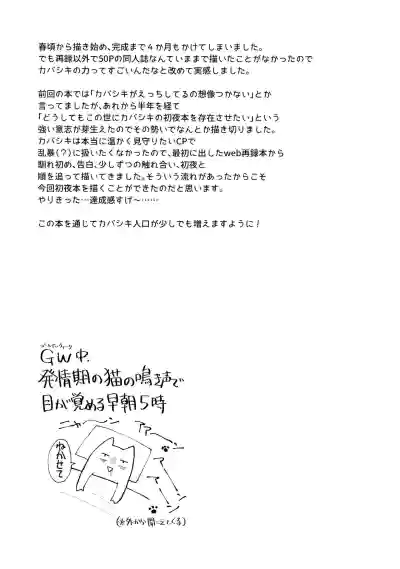 春頃から描き始め、完成まで４か月もかけてしまいました。
でも再録以外で50Pの同人誌なんていままで描いたことがなかったので
カバシキの力ってすごいんだなと改めて実感しました。
前回の本では「カバシキがえっちしてるの想像つかない」とか
言ってましたが、あれから半年を経て
「どうしてもこの世にカバシキの初夜本を存在させたい」という
強い意志が芽生えたのでその勢いでなんとか描き切りました。
カバシキは本当に温かく見守りたいCPで
乱暴(？)に扱いたくなかったので、最初に出したweb再録本から
馴れ初め、告白、少しずつの触れ合い、初夜と
順を追って描いてきました。そういう流れがあったからこそ
今回初夜本を描くことができたのだと思います。
やりきった…達成感すげ〜……
この本を通じてカバシキ人口が少しでも増えますように！
ゴールデンウィーク
GW中、
発情期の猫の鳴き声で
目が覚める早朝5時
ニャーン
アァーン
アーーン
ねかせて
(※外から聞こえてくる)